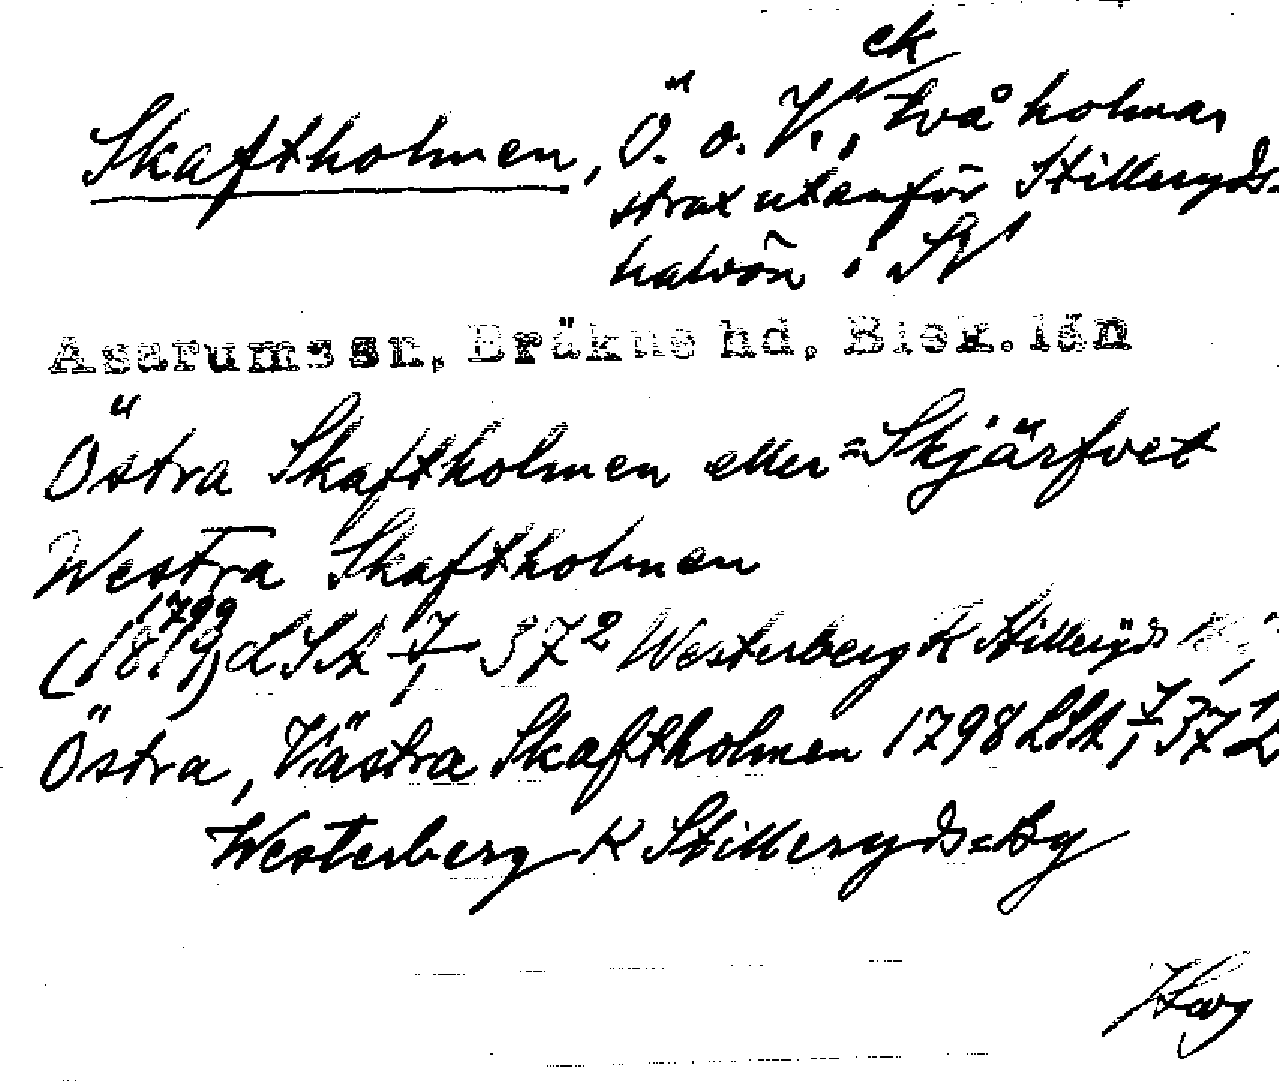 ek
Skaftholmen, Ö. o. V., två holmar
strax utanför Stilleryds-
halvön i SV
Asarums sn, Bräkne hd, Blek. län
Östra Skaftholmen eller =Skjärfvet
Westra Skaftholmen
1799
(1819) LSA 7, 37² Westerberg K Stilleryds
Östra, Västra Skaftholmen 1798 LSA, 7, 37
Westerberg K Stilleryds=Bg